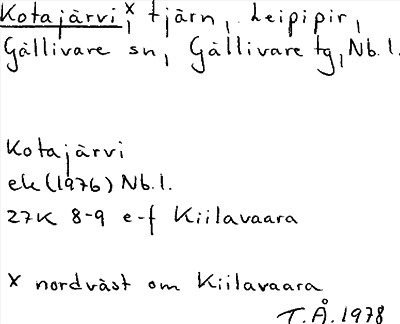 Kotajärvi,ˣ tjärn, Leipipir,
Gällivare sn, Gällivare tg, Nb.l.
Kotajärvi
ek (1976) Nb.l.
27K 8-9 e-f Kiilavaara
x nordväst om Kiilavaara
T.Å. 1978